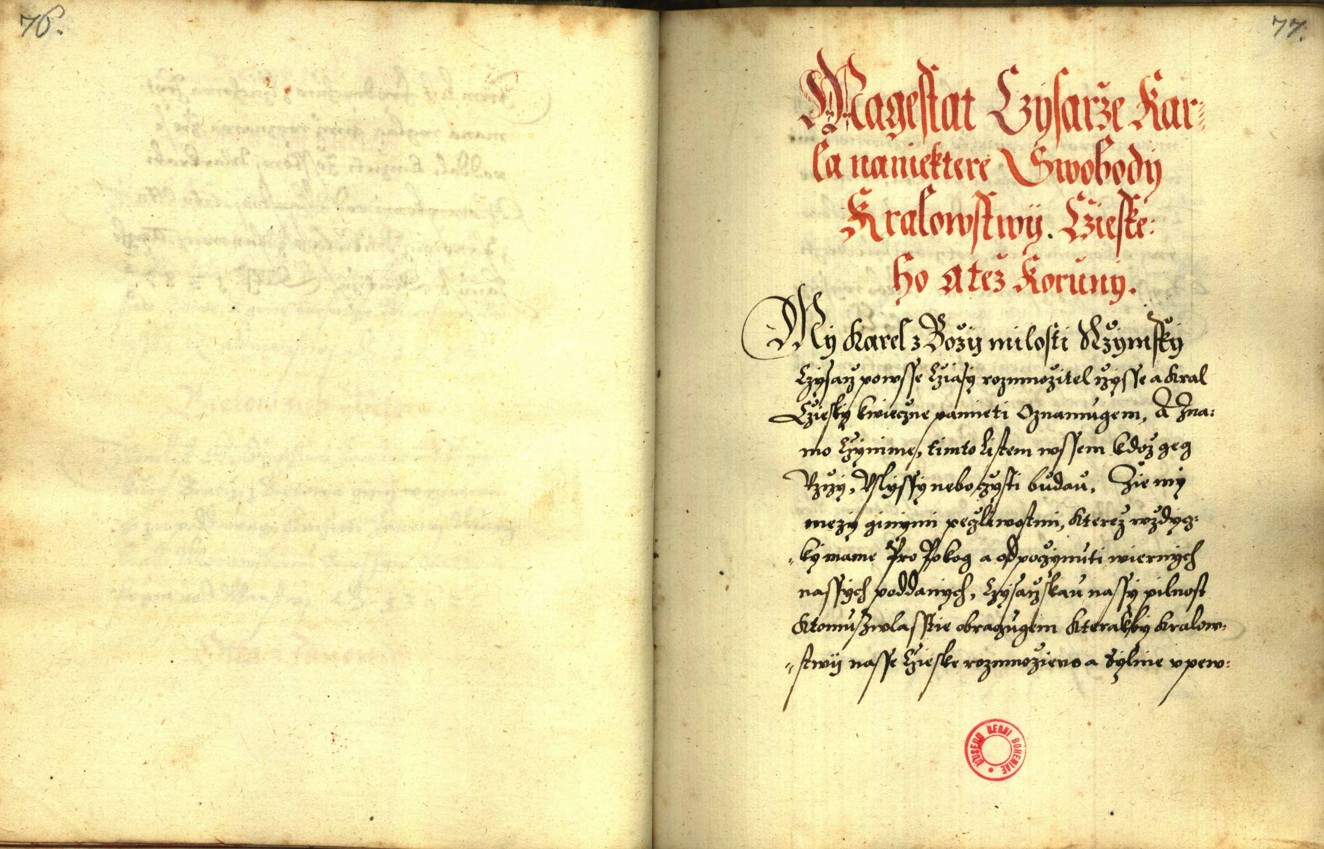 76.
77.
Magestat Czysarze Kar-
la naniektere Swobody
Kralowstwij. Czieske-
ho A też Koruny.
My Karel z Božij milosti Rzymsky
Czysarz powsse cziasy rozmnožitel rzysse a kral
Cziesky kwieczne pamieti Oznamugem, A Zna-
mo czynime, timto listem wssem kdož geg
Rzrzy, Vslyssy nebo czysti budau, Zie my
mezy ginymi peczliwostmi, kterež wždyc-
ky mame Pro Pokog a odpoczynuti wiernych
nassych poddanych, Czysarzskau nassy pilnost
Ktomu zwlasstie obraczugem kterakby kralow-
stwij nasse Czieske rozmnoženo a Sylnie vpew-
MUSEUM REGNI BOHEMIAE